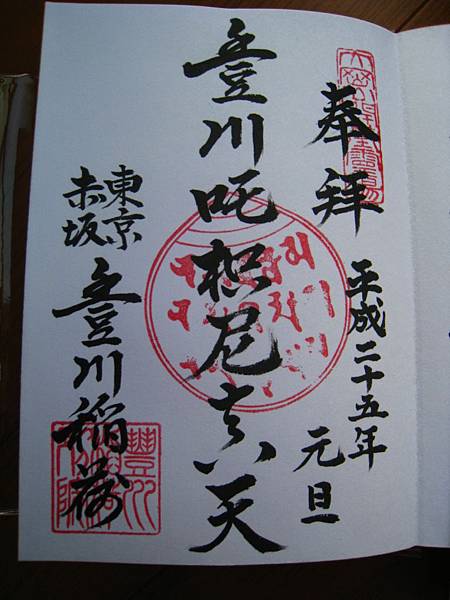 奉拝
平成二十五年
元旦
豊川吒枳尼真天
東京
赤坂
豊川稲荷